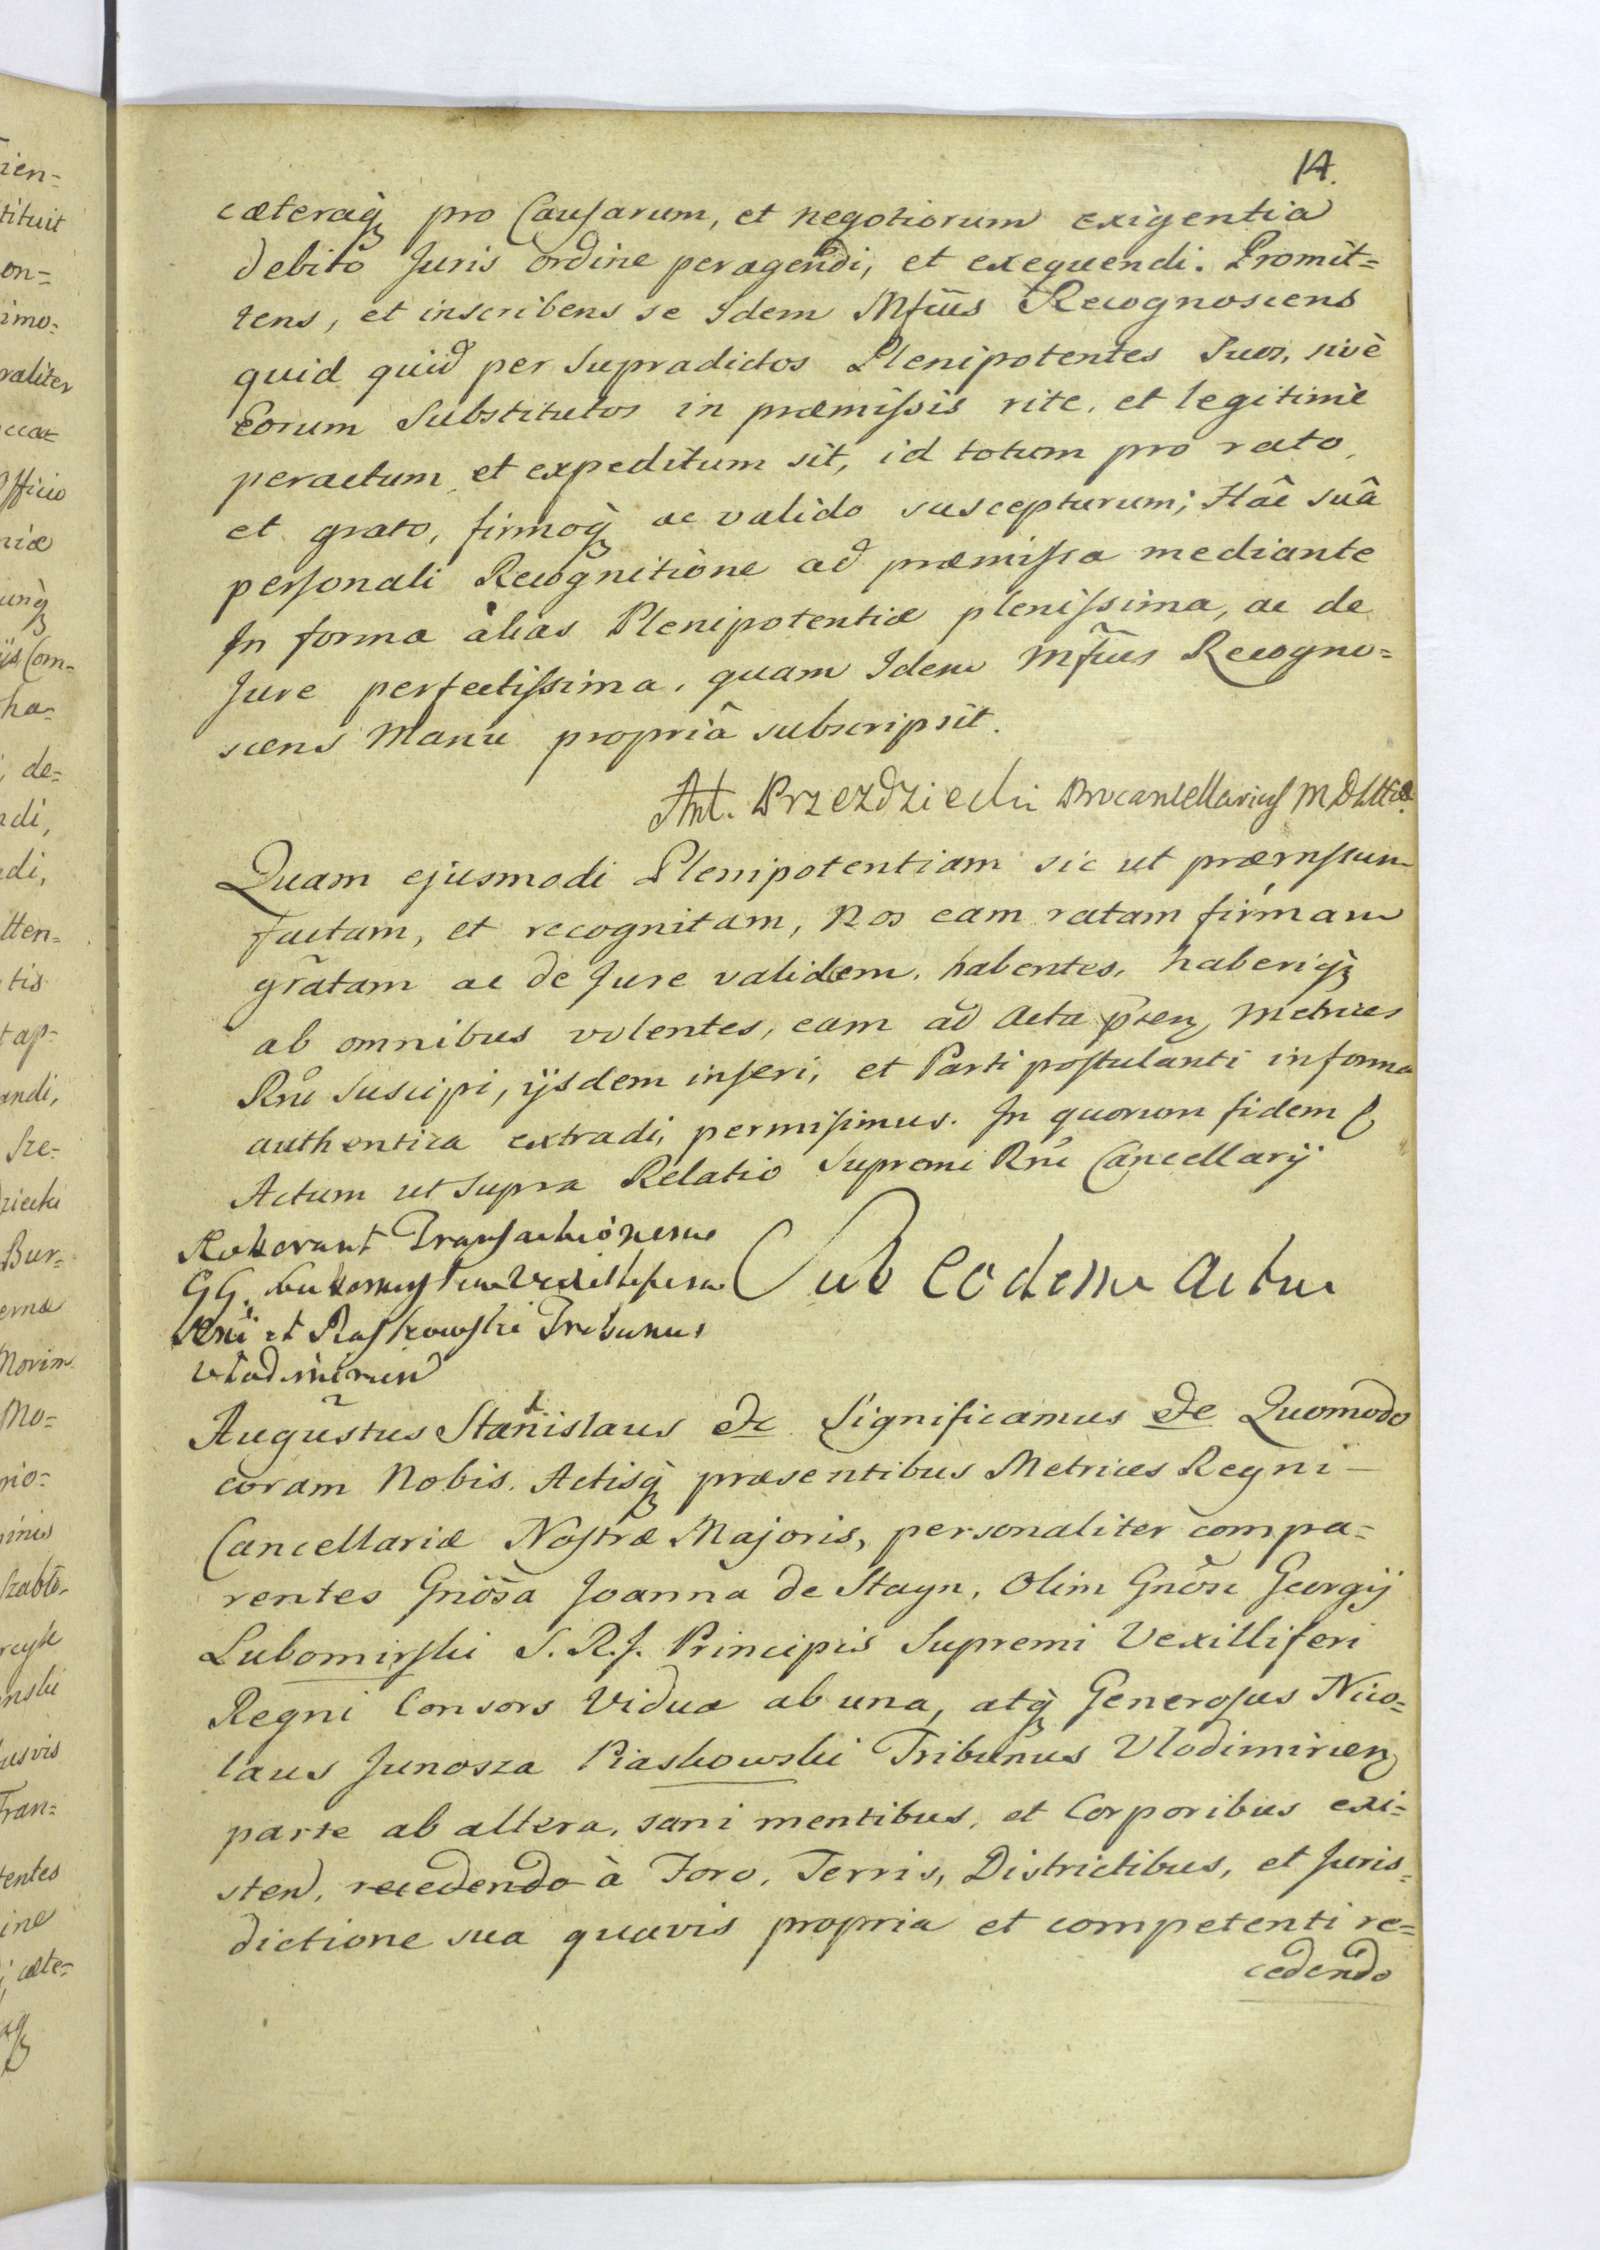 14.
cæteraq̃ pro Causarum, et negotiorum exigentia
debito Juris Ordine peragendi, et exequendi. Promit=
tens, et inscribens se Idem Mfcus Recognoscens
quid quid per Supradictos Plenipotentes Suos, sivè
Eorum Substitutos in præmissis rite, et legitimè
peractum et expeditum sit, id totum pro rato,
et grato, firmoq̃ ac valido suscepturum; Hâc suâ
personali Recognitione ad præmissa mediante
In forma alias Plenipotentiæ plenissima, ac de
Jure perfectissima, quam Idem Mfcus Recogno=
scens Manu propriâ subscripsit.
Ant. Przezdziecki Procancellarius M D Litt.
Quam ejusmodi Plenipotentiam sic ut præmissum
factam, et recognitam, Nos eam ratam firmam
gratam ac de Jure validam, habentes, haberiq̃
ab omnibus volentes, eam ad Acta pñen Metrices
Rni Suscipi, ijsdem inseri, et Parti postulanti in forma
authentica extradi, permisimus. In quorum fidem &
Actum ut Supra Relatio Supremi Rni Cancellarij
Roborant Transactionem
GG. Lubomirska Vexillifera
Rni et Piaskowski Tribunus
Vlodimirien
Sub eodem actu
Augustus Stanislaus &c Significamus &c Quomodo
coram Nobis, Actisq̃ præsentibus Metrices Regni
Cancellariæ Nostræ Majoris, personaliter compa=
rentes Gnosa Joanna de Stayn, Olim Gnosi Georgij
Lubomirski S. R. J. Principis Supremi Vexilliferi
Regni Consors Vidua ab una, atq̃ Generosus Nico=
laus Junosza Piaskowski Tribunus Vlodimirien
parte ab altera, sani mentibus, et Corporibus exi=
sten, recedendo à Foro, Terris, Districtibus, et Juris=
dictione sua quavis propria et competenti re=
cedendo